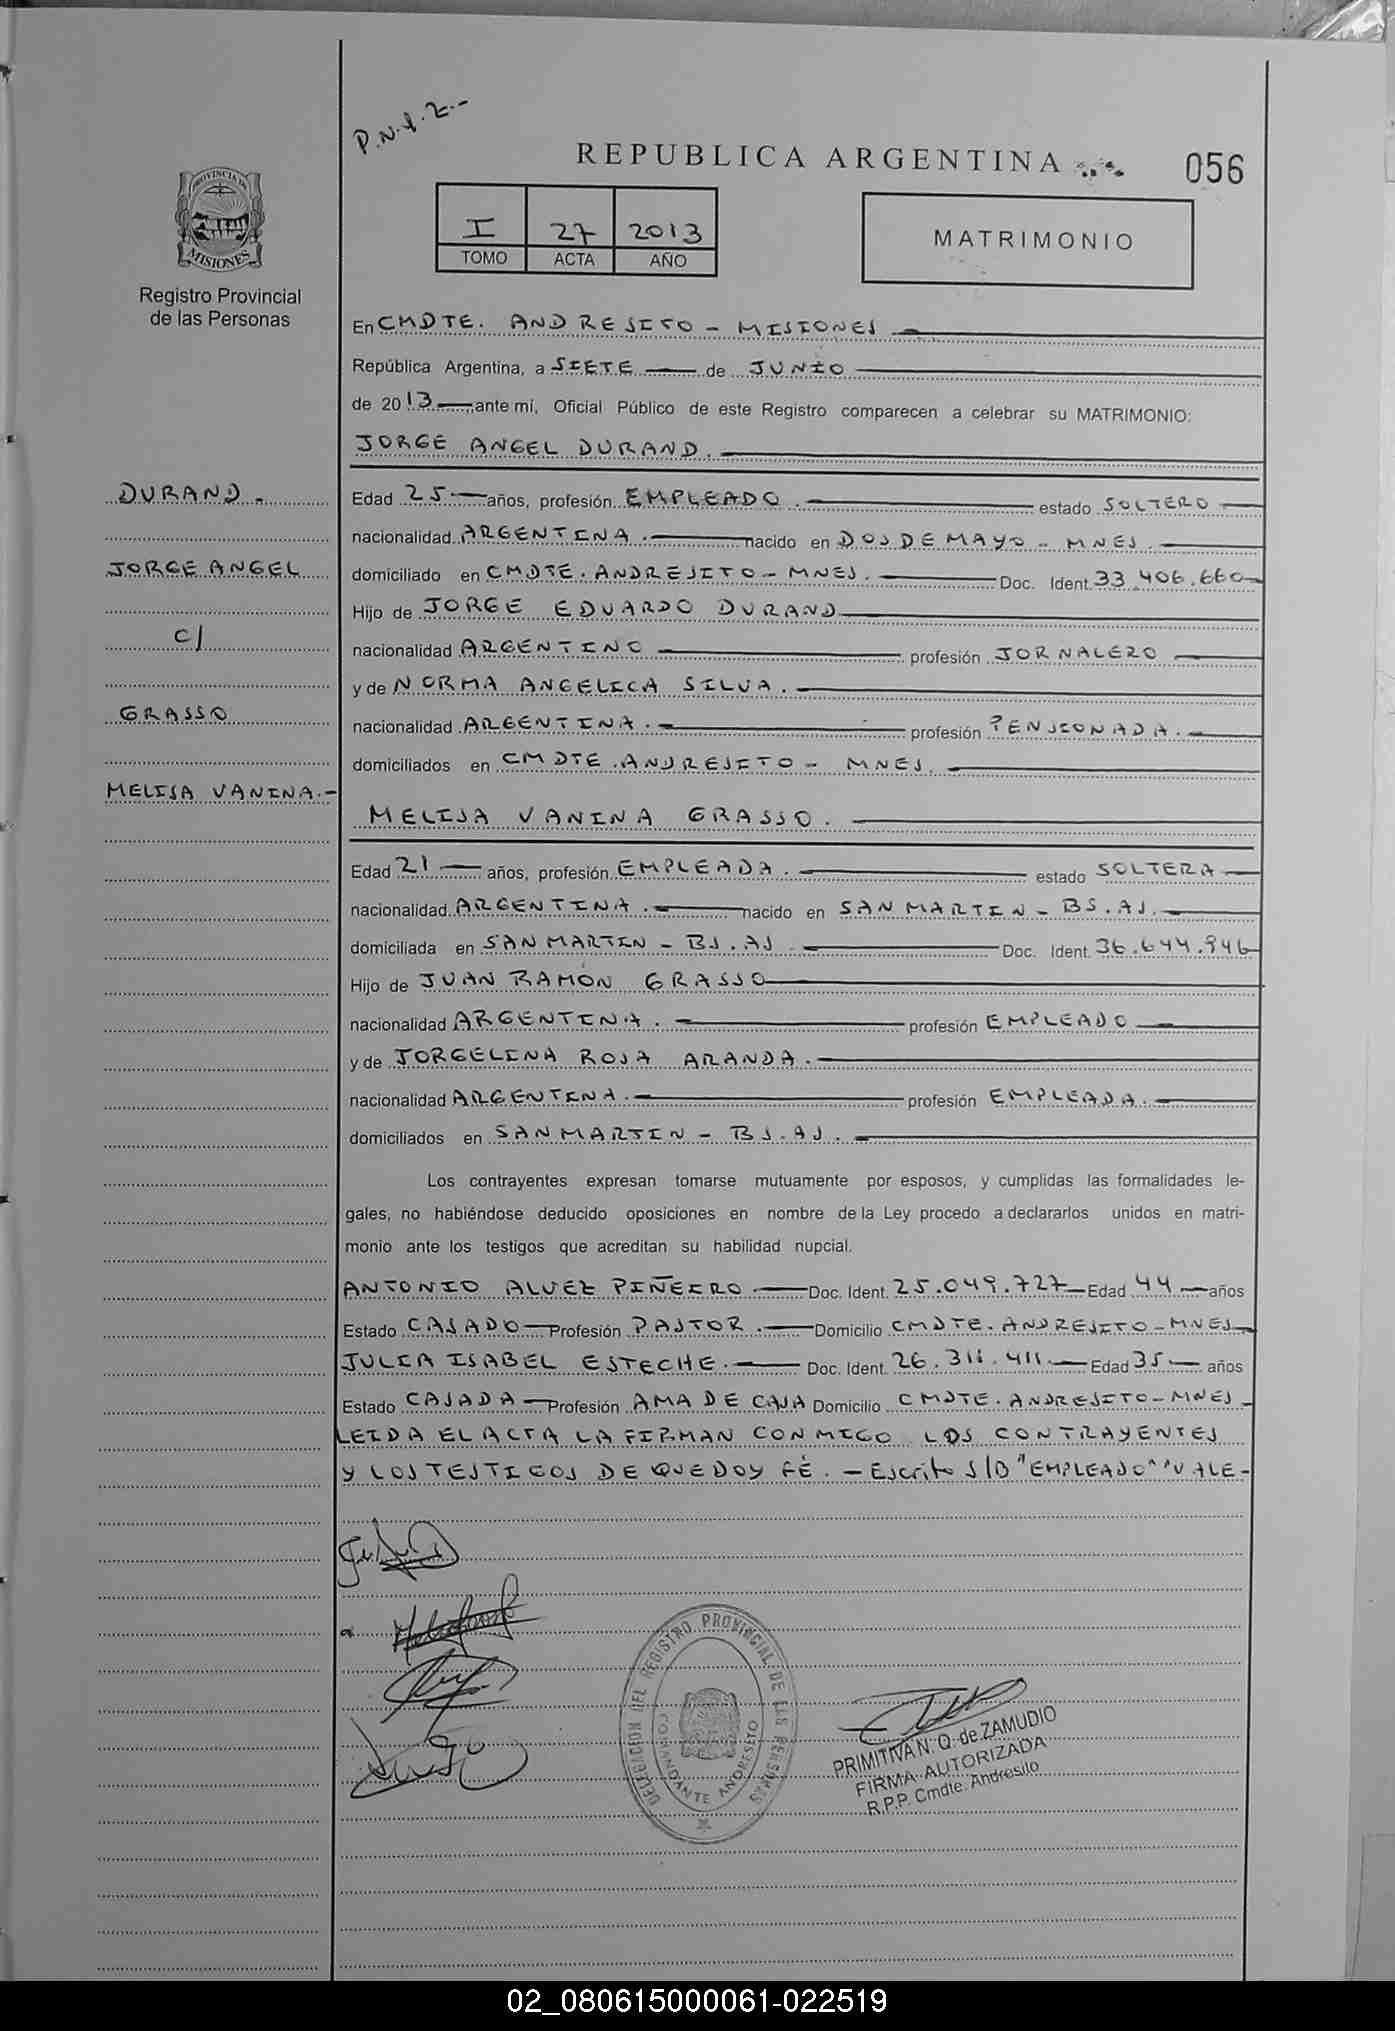 P.N.1.2.-
REPUBLICA ARGENTINA
056
I 27 2013
TOMO ACTA AÑO
MATRIMONIO
PROVINCIA DE MISIONES
Registro Provincial
de las Personas
En CMDTE. ANDRESITO - MISIONES
República Argentina, a SIETE de JUNIO
de 2013 ante mí, Oficial Público de este Registro comparecen a celebrar su MATRIMONIO:
JORGE ANGEL DURAND.
DURAND.-
JORGE ANGEL
c/
GRASSO
MELISA VANINA.-
Edad 25 años, profesión EMPLEADO. estado SOLTERO
nacionalidad ARGENTINA. nacido en DOS DE MAYO - MNES.
domiciliado en CMDTE. ANDRESITO - MNES. Doc. Ident. 33.406.660
Hijo de JORGE EDUARDO DURAND
nacionalidad ARGENTINO profesión JORNALERO
y de NORMA ANGELICA SILVA.
nacionalidad ARGENTINA. profesión PENSIONADA.
domiciliados en CMDTE. ANDRESITO - MNES.
MELISA VANINA GRASSO.
Edad 21 años, profesión EMPLEADA. estado SOLTERA
nacionalidad ARGENTINA. nacido en SAN MARTIN - BS.AS.
domiciliada en SAN MARTIN - BS.AS. Doc. Ident. 36.644.946
Hijo de JUAN RAMÓN GRASSO
nacionalidad ARGENTINA. profesión EMPLEADO
y de JORGELINA ROSA ARANDA.
nacionalidad ARGENTINA. profesión EMPLEADA.
domiciliados en SAN MARTIN - BS.AS.
Los contrayentes expresan tomarse mutuamente por esposos, y cumplidas las formalidades le-
gales, no habiéndose deducido oposiciones en nombre de la Ley procedo a declararlos unidos en matri-
monio ante los testigos que acreditan su habilidad nupcial.
ANTONIO ALVEZ PIÑEIRO. Doc. Ident. 25.049.727 Edad 44 años
Estado CASADO Profesión PASTOR. Domicilio CMDTE. ANDRESITO - MNES
JULIA ISABEL ESTECHE. Doc. Ident. 26.311.411 Edad 35 años
Estado CASADA Profesión AMA DE CASA Domicilio CMDTE. ANDRESITO - MNES
LEIDA EL ACTA LA FIRMAN CONMIGO LOS CONTRAYENTES
Y LOS TESTIGOS DE QUE DOY FÉ. - Escrito S/B "EMPLEADO" "VALE-
DELEGACION DEL REGISTRO PROVINCIAL DE LAS PERSONAS
COMANDANTE ANDRESITO
PRIMITIVA N. Q. de ZAMUDIO
FIRMA AUTORIZADA
R.P.P. Cmdte. Andresito
02_080615000061-022519